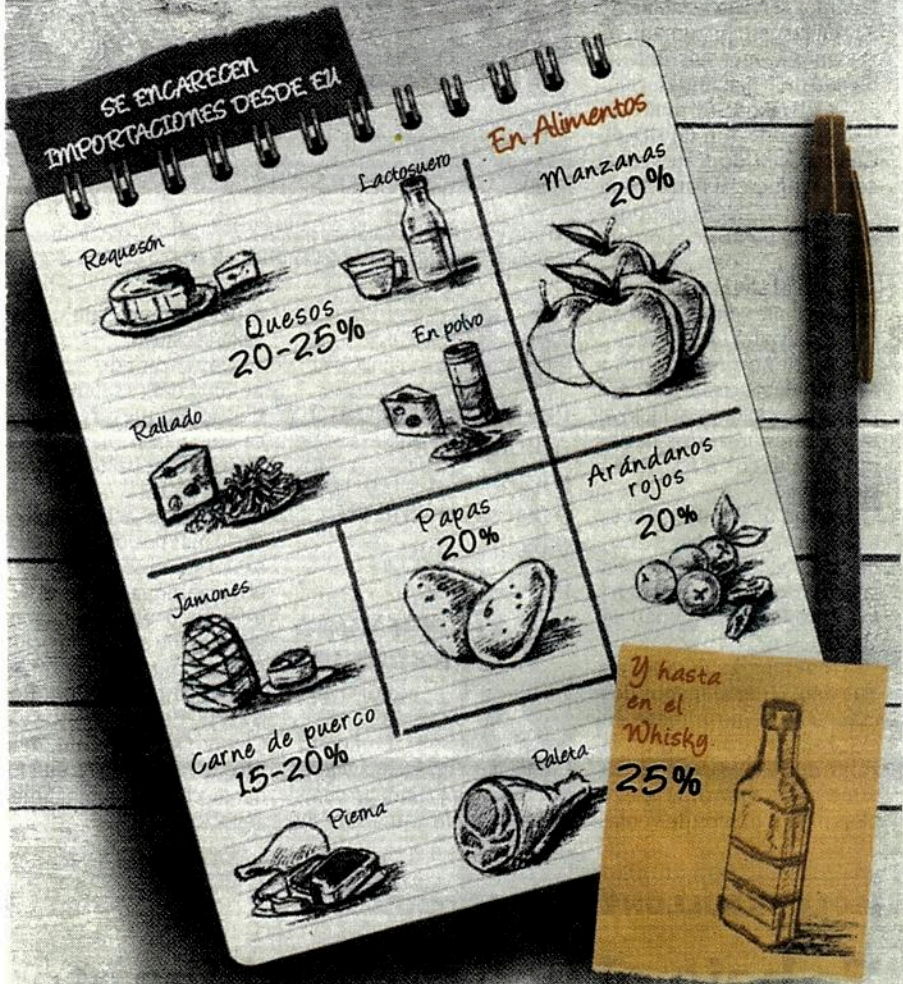 SE ENCARECEN
IMPORTACIONES DESDE EU
En Alimentos
Lactosuero
Requesón
Quesos
20-25%
En polvo
Rallado
Manzanas
20%
Papas
20%
Arándanos
rojos
20%
Jamones
Carne de puerco
15-20%
Pierna
Paleta
Y hasta
en el
Whisky
25%